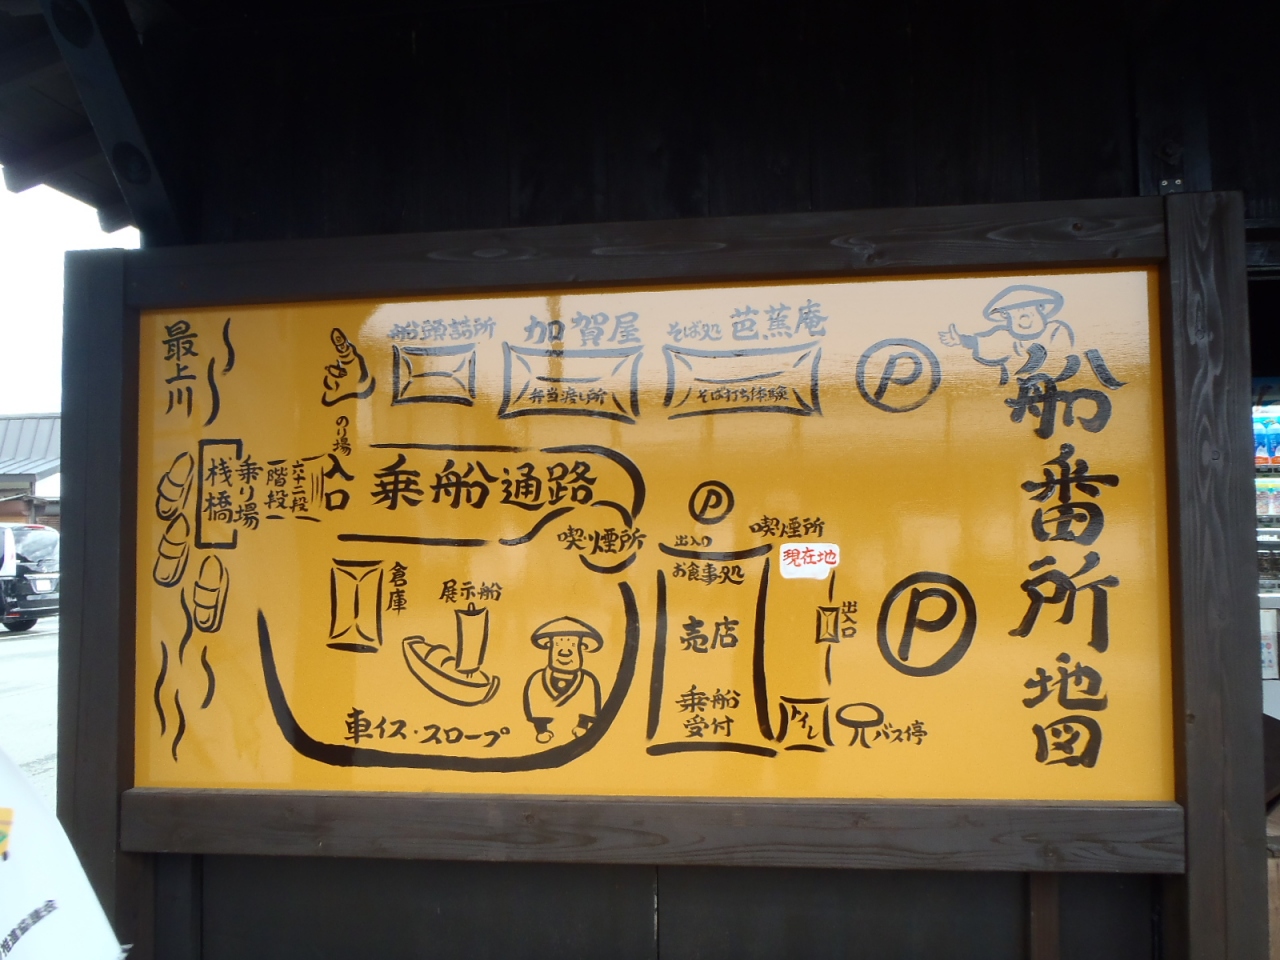 船番所地図
最上川
船頭詰所
加賀屋
弁当渡し所
そば処 芭蕉庵
そば打ち体験
P
のり場
入口
乗船通路
六十二段
階段
乗り場
桟橋
喫煙所
P
出入口
喫煙所
現在地
お食事処
倉庫
展示船
売店
出入口
P
乗船
受付
トイレ
バス停
車イス・スロープ